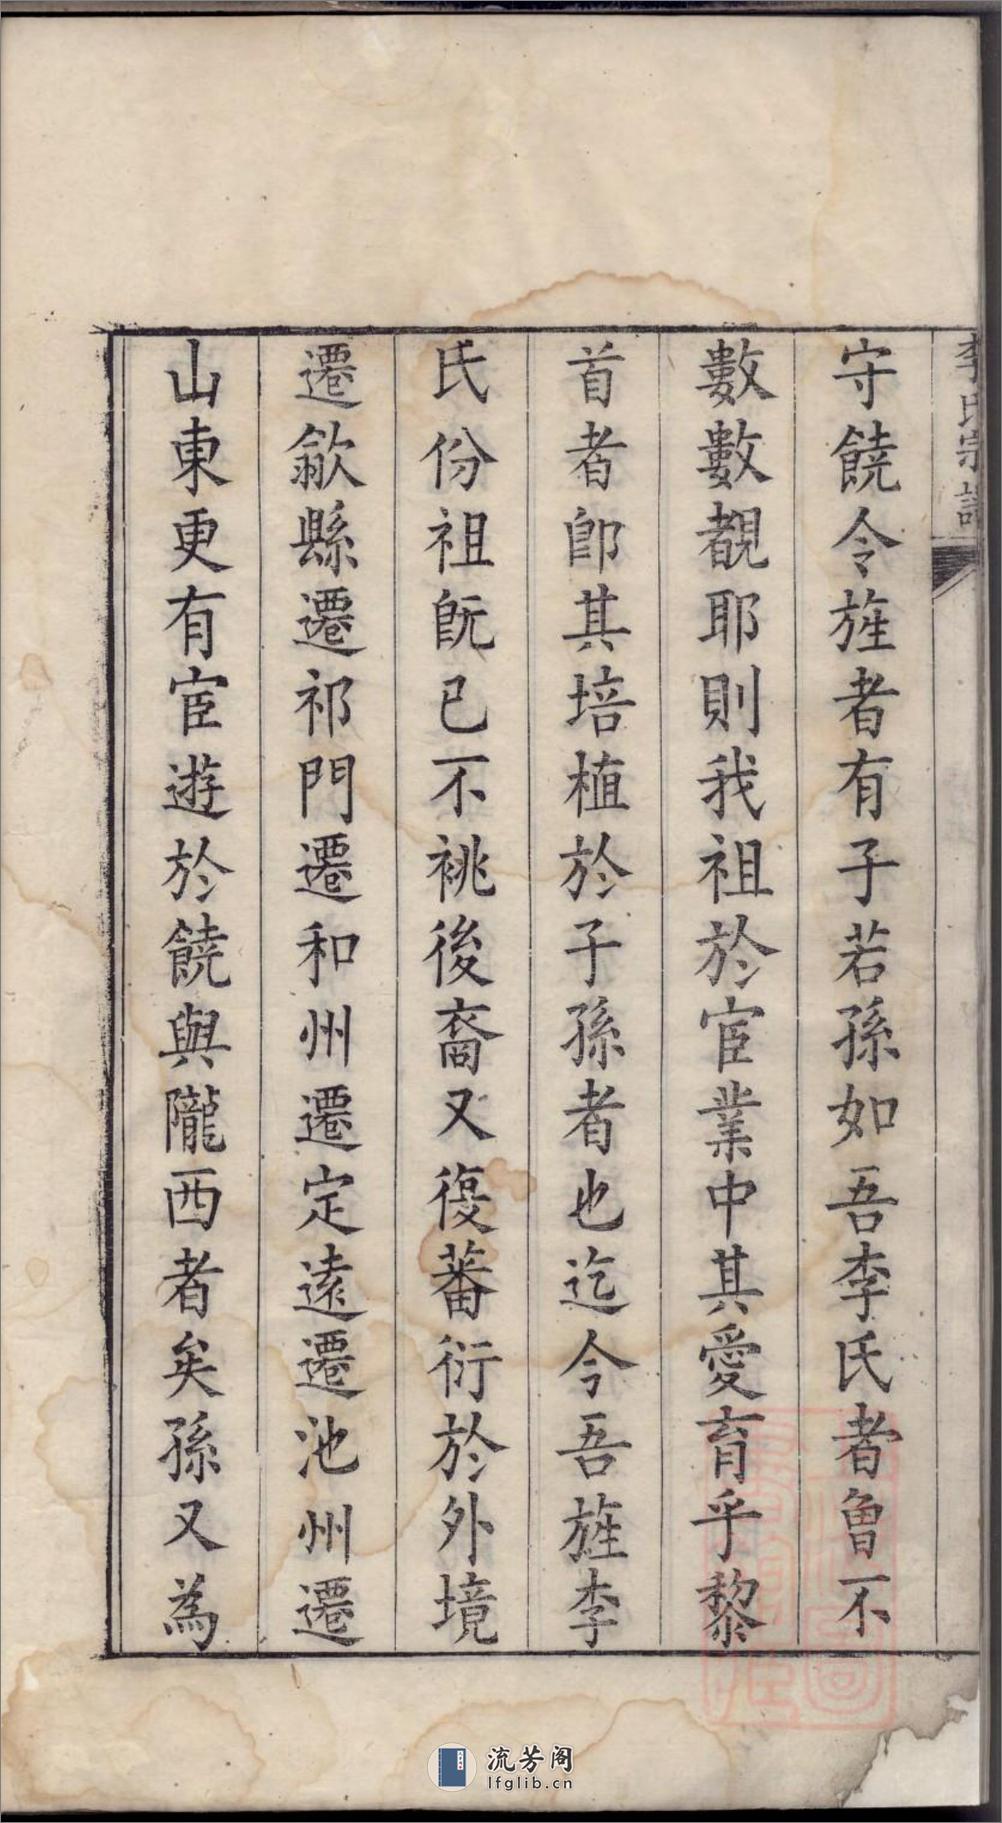 李氏宗譜
守饒令旌者有子若孫如吾李氏者曾不
數數覩耶則我祖於宦業中其愛育乎黎
首者卽其培植於子孫者也迄今吾旌李
氏份祖旣已不祧後裔又復蕃衍於外境
遷歙縣遷祁門遷和州遷定遠遷池州遷
山東更有宦遊於饒與隴西者矣孫又為
流芳阁
lfglib.cn